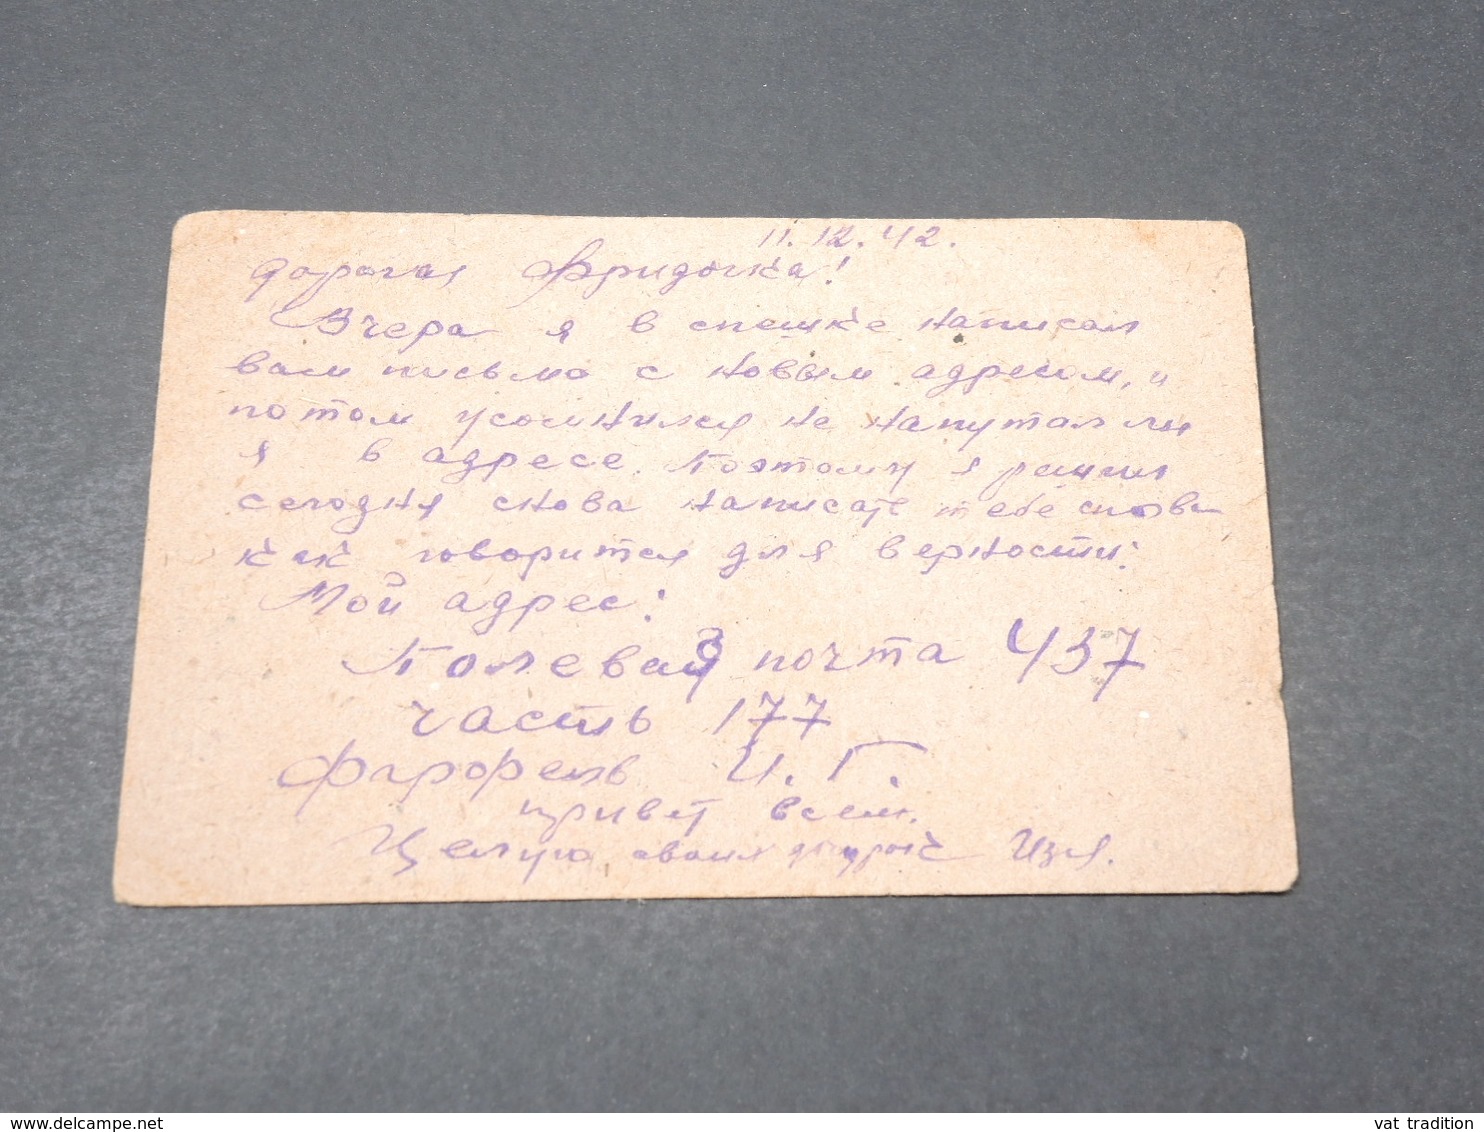 11.12.42.
дорогая Фридочка!
Вчера я в спешке написал
вам письмо с новым адресом, и
потом усомнился не напутал ли
я в адресе. Поэтому я решил
сегодня снова написать тебе
как говорится для верности:
Мой адрес:
Полевая почта 437
часть 177
И. Г.
привет всем.
Целую Изя.
www.delcampe.net
vat tradition